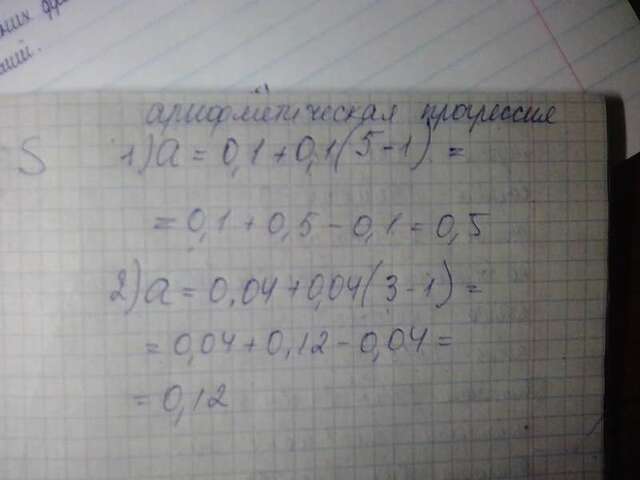 арифметическая прогрессия
S 1) a = 0,1 + 0,1(5 - 1) =
= 0,1 + 0,5 - 0,1 = 0,5
2) a = 0,04 + 0,04(3 - 1) =
= 0,04 + 0,12 - 0,04 =
= 0,12